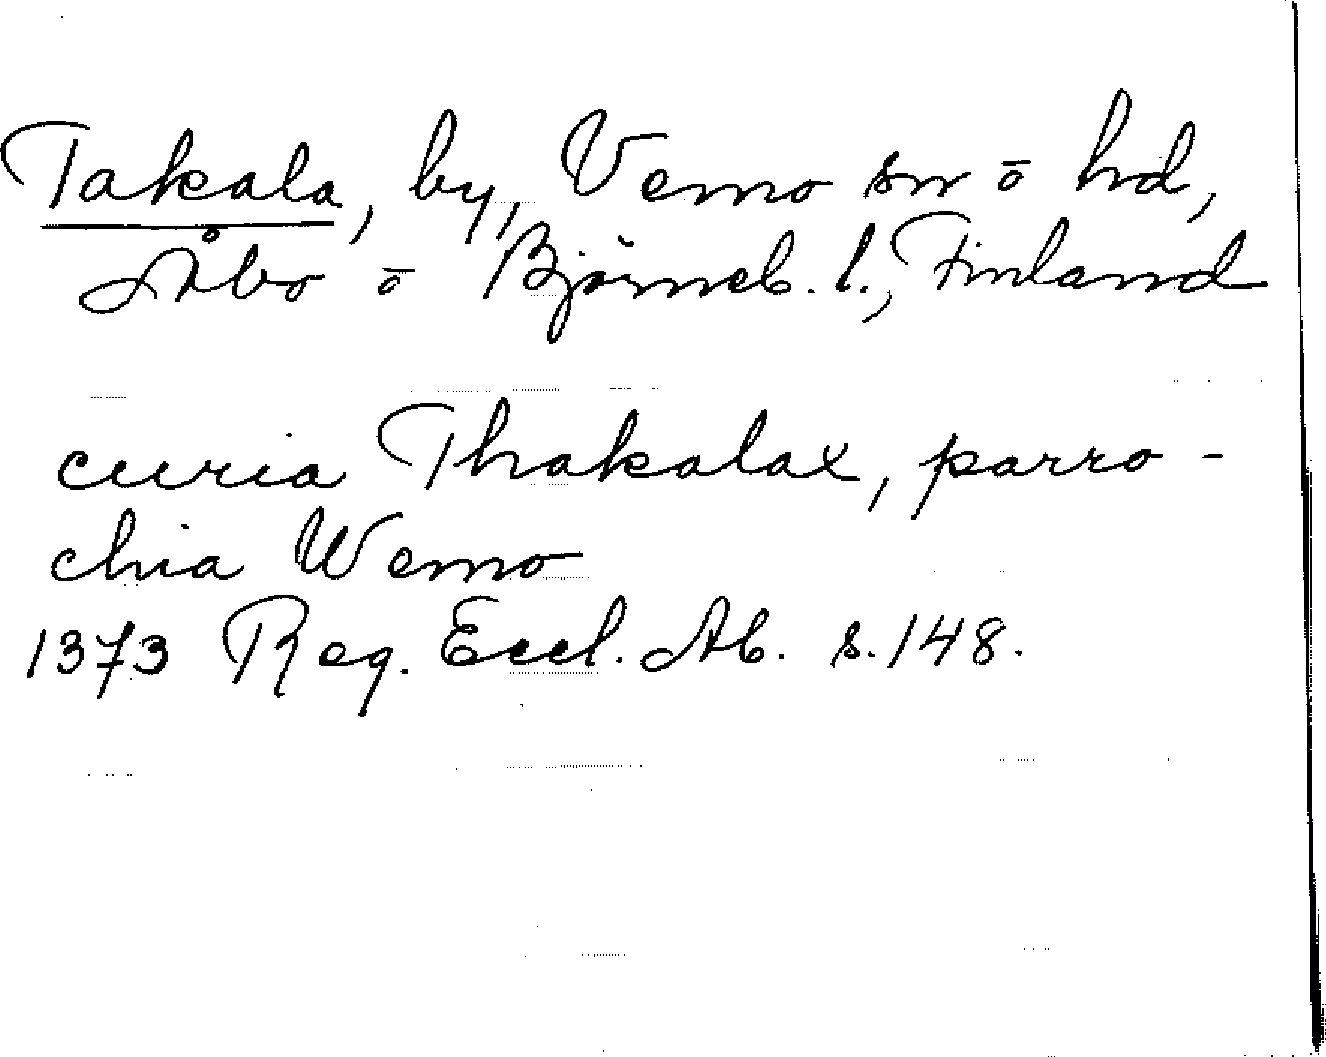 Takala, by, Vemo sn ō hd,
Åbo ō Björneb. l., Finland
curia Thakalax, parro-
chia Wemo
1373 Reg. Eccl. Ab. s. 148.